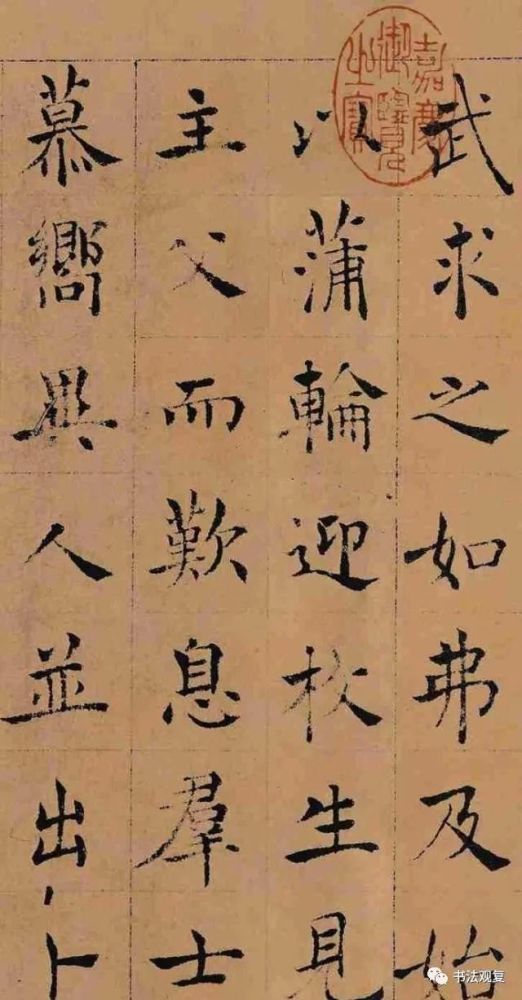 武求之如弗及始
以蒲輪迎枚生見
主父而歎息羣士
慕嚮異人並出卜
嘉慶御覽之寶
书法观复